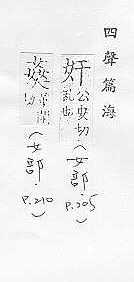 四聲篇海
奸 公安切 亂也 （女部 P.205）
姦 古顏切 （女部 P.210）